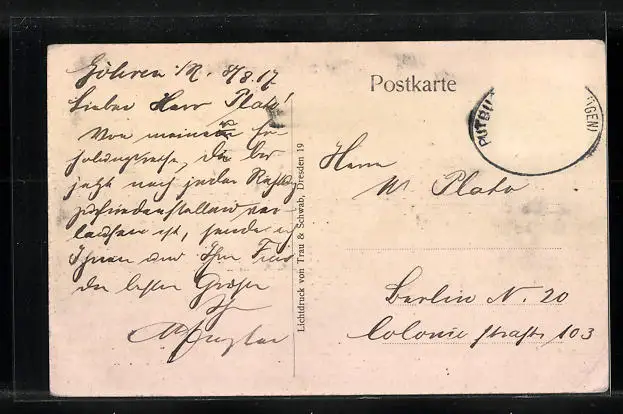 Göhren a/R. 8/8.17
Lieber Herr Plato!
Von meiner Er-
holungsreise, die bis
jetzt nach jeder Richtg
zufriedenstellend ver-
laufen ist, sende ich
Ihnen und Ihrer Frau
die besten Grüße
Ihr
Lichtdruck von Trau & Schwab, Dresden 19
Postkarte
PUTBU (GEN)
Herrn
W. Plato
Berlin N. 20
Coloniestraße 103